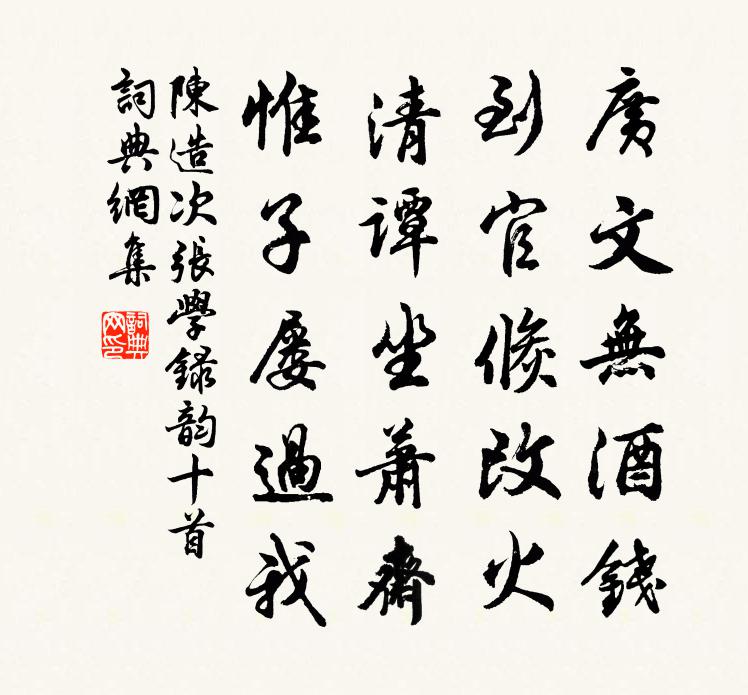 廣文無酒錢
到官倐改火
清譚坐蕭齋
惟子屡過我
陳造次張學録韵十首
詞典網集
詞典網印